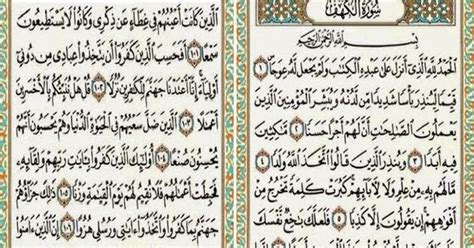 سُورَةُ الْكَهْفِ
بِسْمِ اللَّهِ الرَّحْمَٰنِ الرَّحِيمِ
الْحَمْدُ لِلَّهِ الَّذِي أَنزَلَ عَلَىٰ عَبْدِهِ الْكِتَٰبَ وَلَمْ يَجْعَل لَّهُ عِوَجًا ١
قَيِّمًا لِّيُنذِرَ بَأْسًا شَدِيدًا مِّن لَّدُنْهُ وَيُبَشِّرَ الْمُؤْمِنِينَ الَّذِينَ
يَعْمَلُونَ الصَّٰلِحَٰتِ أَنَّ لَهُمْ أَجْرًا حَسَنًا ٢ مَّٰكِثِينَ
فِيهِ أَبَدًا ٣ وَيُنذِرَ الَّذِينَ قَالُوا اتَّخَذَ اللَّهُ وَلَدًا ٤
مَّا لَهُم بِهِ مِنْ عِلْمٍ وَلَا لِءَابَائِهِمْ كَبُرَتْ كَلِمَةً تَخْرُجُ مِنْ
أَفْوَٰهِهِمْ إِن يَقُولُونَ إِلَّا كَذِبًا ٥ فَلَعَلَّكَ بَٰخِعٌ نَّفْسَكَ
الَّذِينَ كَانَتْ أَعْيُنُهُمْ فِي غِطَاءٍ عَن ذِكْرِي وَكَانُوا لَا يَسْتَطِيعُونَ
سَمْعًا ١٠١ أَفَحَسِبَ الَّذِينَ كَفَرُوا أَن يَتَّخِذُوا عِبَادِي مِن دُونِي
أَوْلِيَاءَ إِنَّا أَعْتَدْنَا جَهَنَّمَ لِلْكَٰفِرِينَ نُزُلًا ١٠٢ قُلْ هَلْ نُنَبِّئُكُم بِالْأَخْسَرِينَ
أَعْمَٰلًا ١٠٣ الَّذِينَ ضَلَّ سَعْيُهُمْ فِي الْحَيَوٰةِ الدُّنْيَا وَهُمْ يَحْسَبُونَ أَنَّهُمْ
يُحْسِنُونَ صُنْعًا ١٠٤ أُولَٰئِكَ الَّذِينَ كَفَرُوا بِـَٔايَٰتِ رَبِّهِمْ وَلِقَائِهِ
فَحَبِطَتْ أَعْمَٰلُهُمْ فَلَا نُقِيمُ لَهُمْ يَوْمَ الْقِيَٰمَةِ وَزْنًا ١٠٥ ذَٰلِكَ جَزَاؤُهُمْ
جَهَنَّمُ بِمَا كَفَرُوا وَاتَّخَذُوا ءَايَٰتِي وَرُسُلِي هُزُوًا ١٠٦ إِنَّ الَّذِينَ ءَامَنُوا